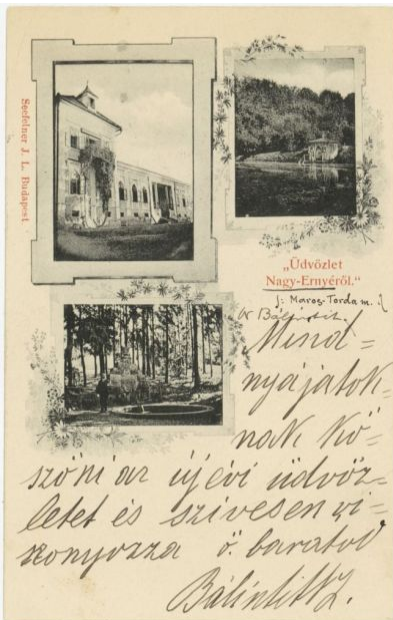 Seefelner J. L. Budapest.
„Üdvözlet
Nagy-Ernyéről.“
Maros-Torda m.
Mind=
nyájatok=
nak kö=
szöni az újévi üdvöz=
letet és szívesen vi=
szonyozza ő. barátod
Bálintitt